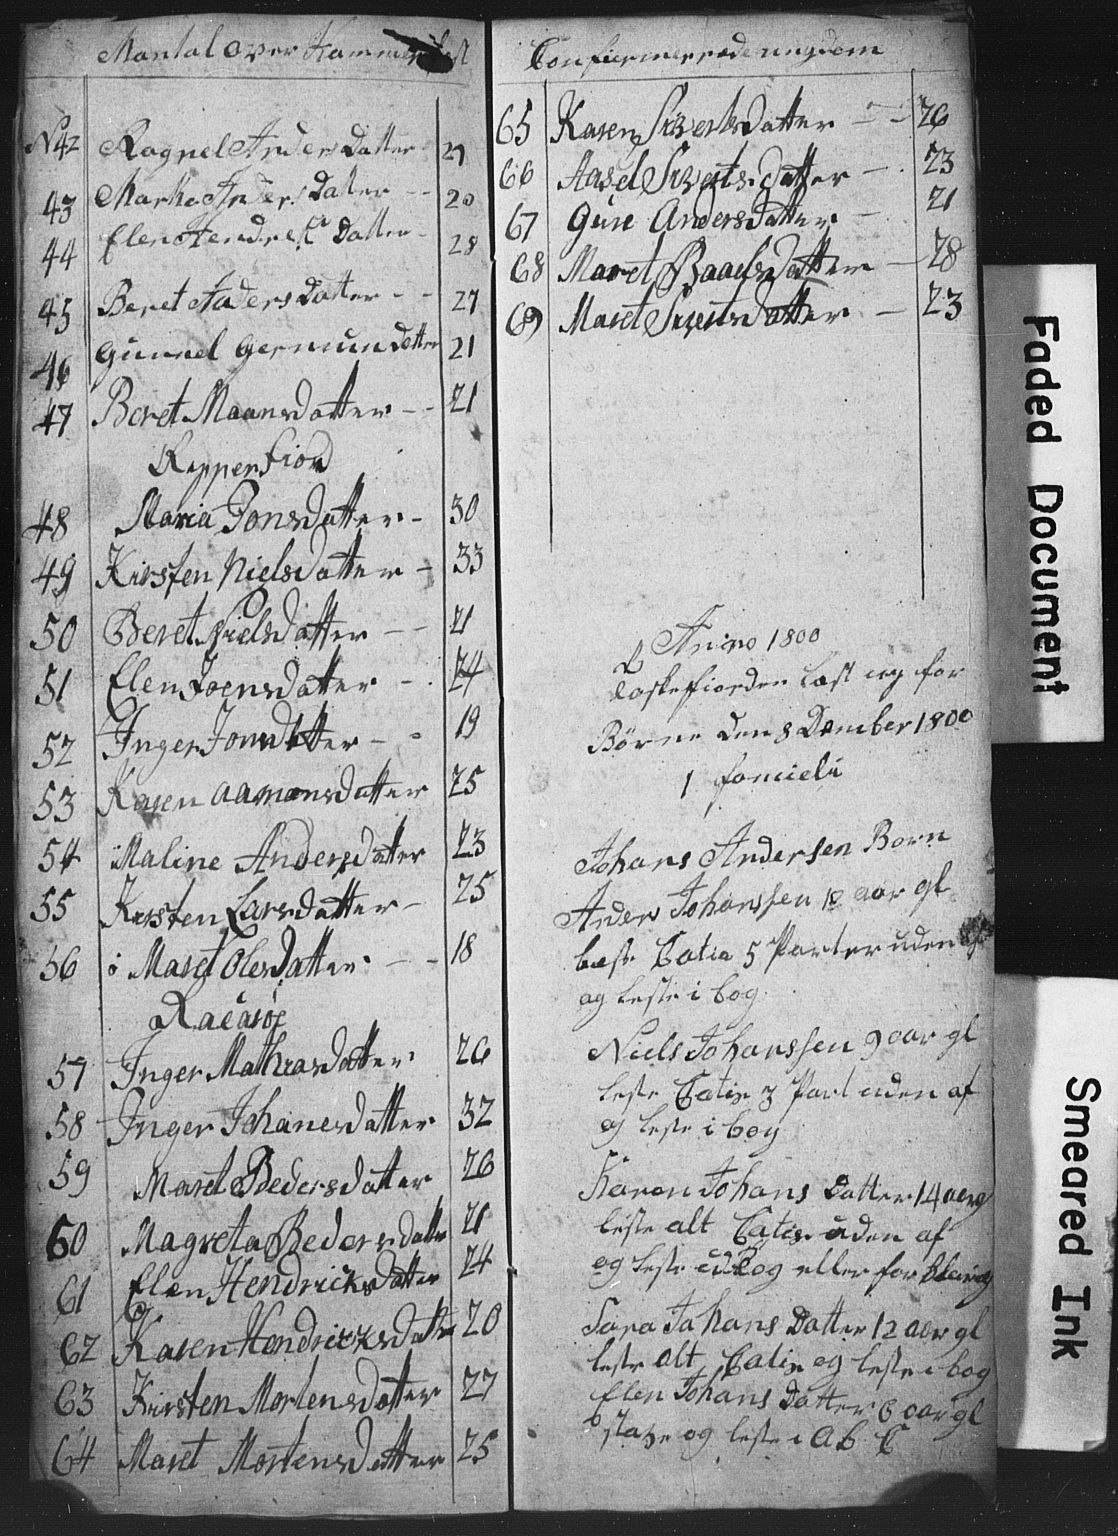 Mantal over Hammerfest
N 42 Ragnel Anders Datter 27
43 Marhe Anders Datter - - 20
44 Elen Hendrecs Datter - 28
45 Beret Anders Datter - - 27
46 Gunnel Germun Datter 21
47 Beret Maans Datter - - 21
Repperfiord
48 Maria Jons Datter - 30
49 Kirsten Niels Datter - 33
50 Beret Niels Datter - - 21
51 Elen Joens Datter - . 24
52 Inger Jons Datter - - 19
53 Karen Aamons Datter 25
54 Maline Anders datter 23
55 Kirsten Lars Datter - 25
56 Maret Oles Datter - - 18
57 Inger Mathias Datter 26
58 Inger Johanes datter 32
59 Maret Beders datter 26
60 Magreta Beders datter 21
61 Elen Hendricks Datter 24
62 Karen Hendricks datter 20
63 Kirsten Mortens datter 27
64 Maret Mortens datter 25
Confiermerrede ungdom
65 Karen Siverts Datter - - 26
66 Aasel Siverts datter - . 23
67 Gure Anders datter - 21
68 Maret Baaels Datter - 28
69 Maret Siverts datter - 23
Anno 1800
læst ug for
Børne den 8 Dember 1800
1 famieli
Johans Andersen Born
Anders Johanssen 12 aar gl
læste Catie 5 Parter uden
og leste i bog
Niels Johanssen 9 aar gl
leste Catie 3 Part uden af
og leste i bog
Karen Johans Datter 14 aar g
leste alt Catie uden af
og leste i Bog eller for klaring
Sara Johans Datter 12 aar gl
leste alt Catie og leste i bog
Elen Johans Datter 6 aar gl
stave og leste i A B C
Faded Document
Smeared Ink